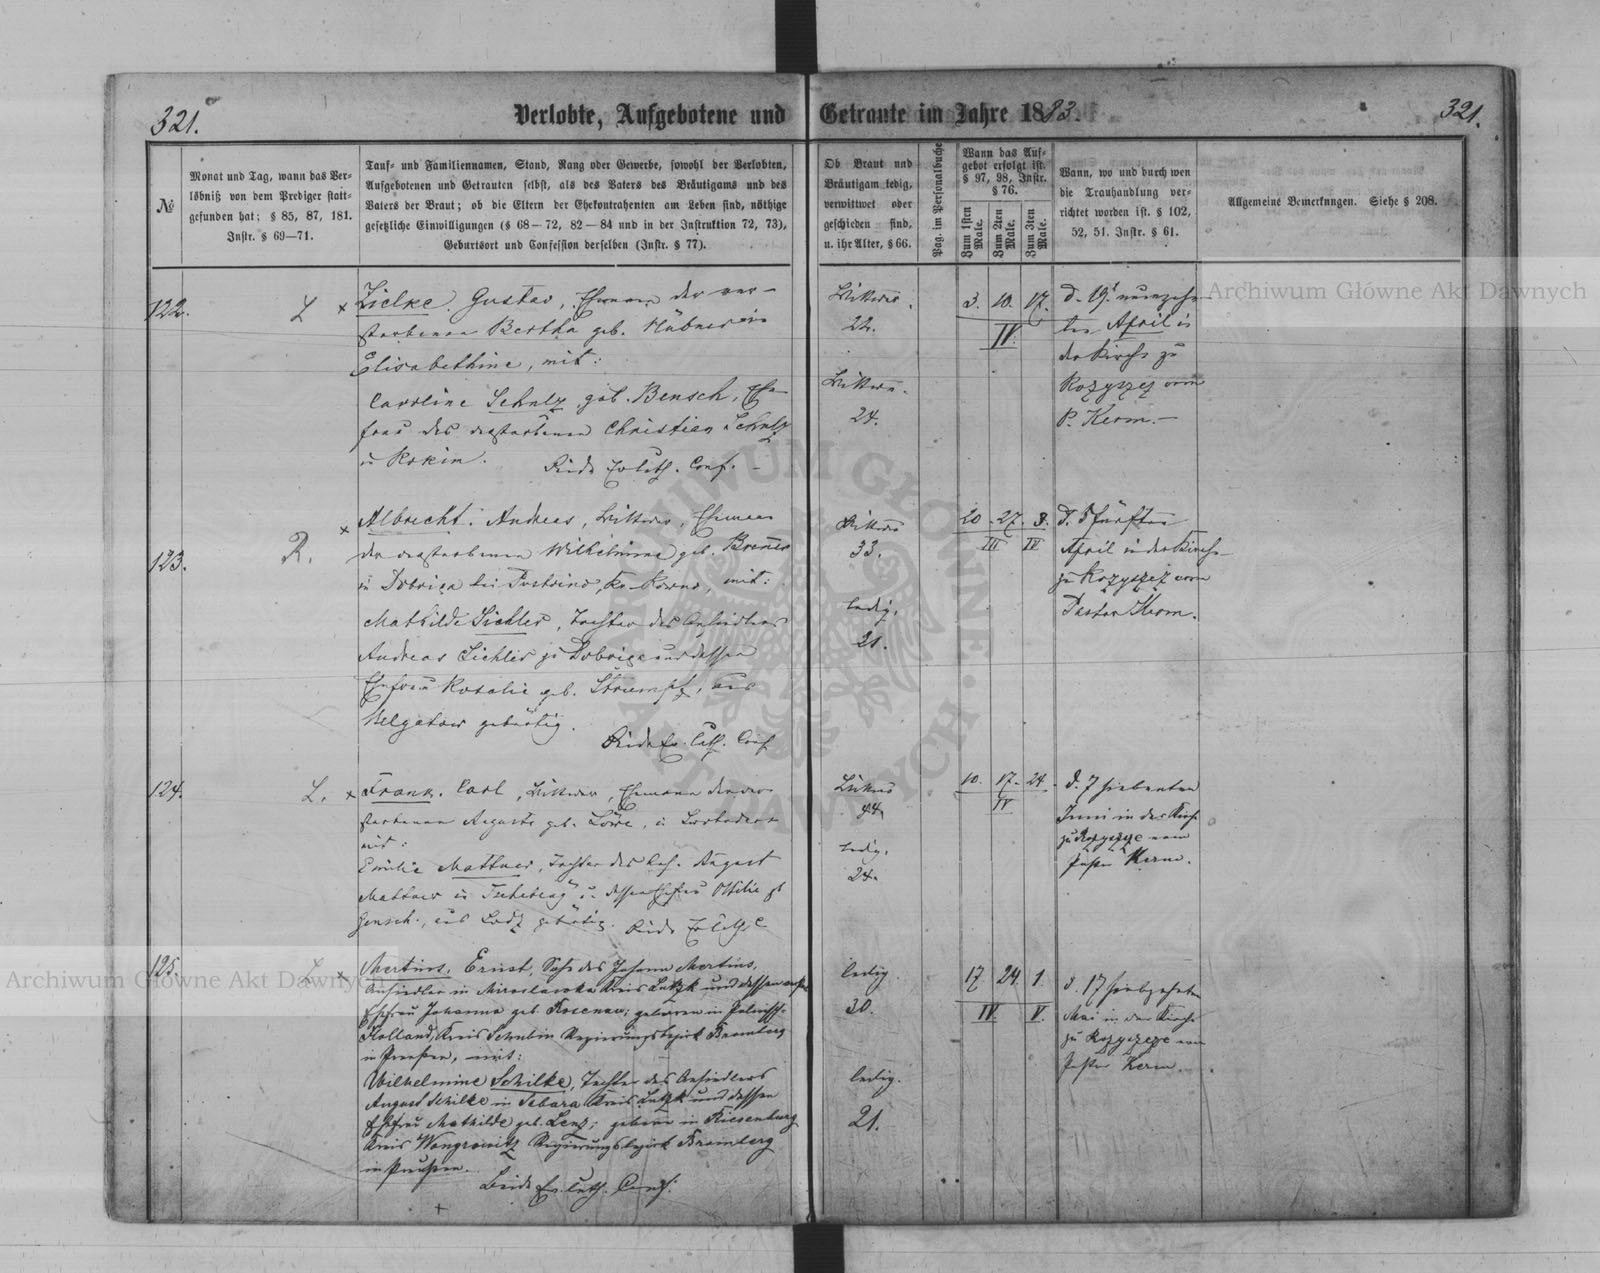 321.
Verlobte, Aufgebotene und Getraute im Jahre 1883.
321.
№
Monat und Tag, wann das Ver-
löbniß von dem Prediger statt-
gefunden hat; § 85, 87, 181.
Instr. § 69—71.
Tauf- und Familiennamen, Stand, Rang oder Gewerbe, sowohl der Verlobten,
Aufgebotenen und Getrauten selbst, als des Vaters des Bräutigams und des
Vaters der Braut; ob die Eltern der Ehekontrahenten am Leben sind, nöthige
gesetzliche Einwilligungen (§ 68—72, 82—84 und in der Instruktion 72, 73),
Geburtsort und Confession derselben (Instr. § 77).
Ob Braut und
Bräutigam ledig,
verwittwet oder
geschieden sind,
u. ihr Alter, § 66.
Pag. im Personalbuche
Wann das Auf-
gebot erfolgt ist.
§ 97, 98, Instr.
§ 76.
Zum 1sten Male.
Zum 2ten Male.
Zum 3ten Male.
Wann, wo und durch wen
die Trauhandlung ver-
richtet worden ist. § 102,
52, 51. Instr. § 61.
Allgemeine Bemerkungen. Siehe § 208.
122.
L ×
Zielke, Gustav, Ehemann der ver-
storbenen Bertha geb. Hübner in
Elisabethine, mit:
Caroline Schulz geb. Bensch, Ehe-
frau des verstorbenen Christian Schulz
in Rokin.
Beide Ev. luth. Conf.
Wittwer
22.
Wittwe.
24.
3. 10. 17.
IV.
d. 19. neunzehn-
ten April in
der Kirche zu
Rozyszcz vom
P. Kerm.
123.
R. ×
Albrecht, Andreas, Wittwer, Ehemann
der verstorbenen Wilhelmine geb.
in Dobriga bei
mit:
Mathilde Sichler, Tochter des Ansiedlers
Andreas Sichler zu Dobriga und dessen
Ehefrau Rosalie geb. Strumpf, aus
Belgatow gebürtig.
Beide Ev. luth. Conf.
Wittwer
33.
ledig.
21.
20. 27. 3.
III IV
d. 5 fünften
April in der Kirche
zu Rozyszcz vom
Pastor Kerm.
124.
L. ×
Frank, Carl, Wittwer, Ehemann der ver-
storbenen Auguste geb. Löwe, in
mit:
Emilie Mattner, Tochter des Col. August
Mattner in u. dessen Ehefrau Ottilie gb
Jensch, aus Lodz gebürtig. Beide Ev luth C
Wittwer
44
ledig.
24.
10. 17. 24.
IV
d. 7 siebenten
Juni in der Kirche
zu Rozyszcze vom
Pastor Kerm.
125.
L ×
Mertins, Ernst, Sohn des Johann Mertins,
Ansiedler in Miroslawka Kreis Lutzk und dessen
Ehefrau Johanna geb. Rosenau; geboren in Polnisch-
Holland, Kreis Schubin Regierungsbezirk Bromberg
in Preußen, mit:
Wilhelmine Schilke, Tochter des Ansiedlers
August Schilke in Tabara Kreis Lutzk und dessen
Ehefrau Mathilde geb. Lenz; geboren in Riesenburg
Kreis Wongrowitz Regierungsbezirk Bromberg
in Preußen.
Beide Ev. luth. Conf.
ledig.
30.
ledig.
21.
17. 24. 1.
IV. V.
d. 17 siebzehnten
Mai in der Kirche
zu Rozyszcze vom
Pastor Kerm.
Archiwum Główne Akt Dawnych
Archiwum Główne Akt Dawnych
ARCHIWUM GŁÓWNE · AKT DAWNYCH ·